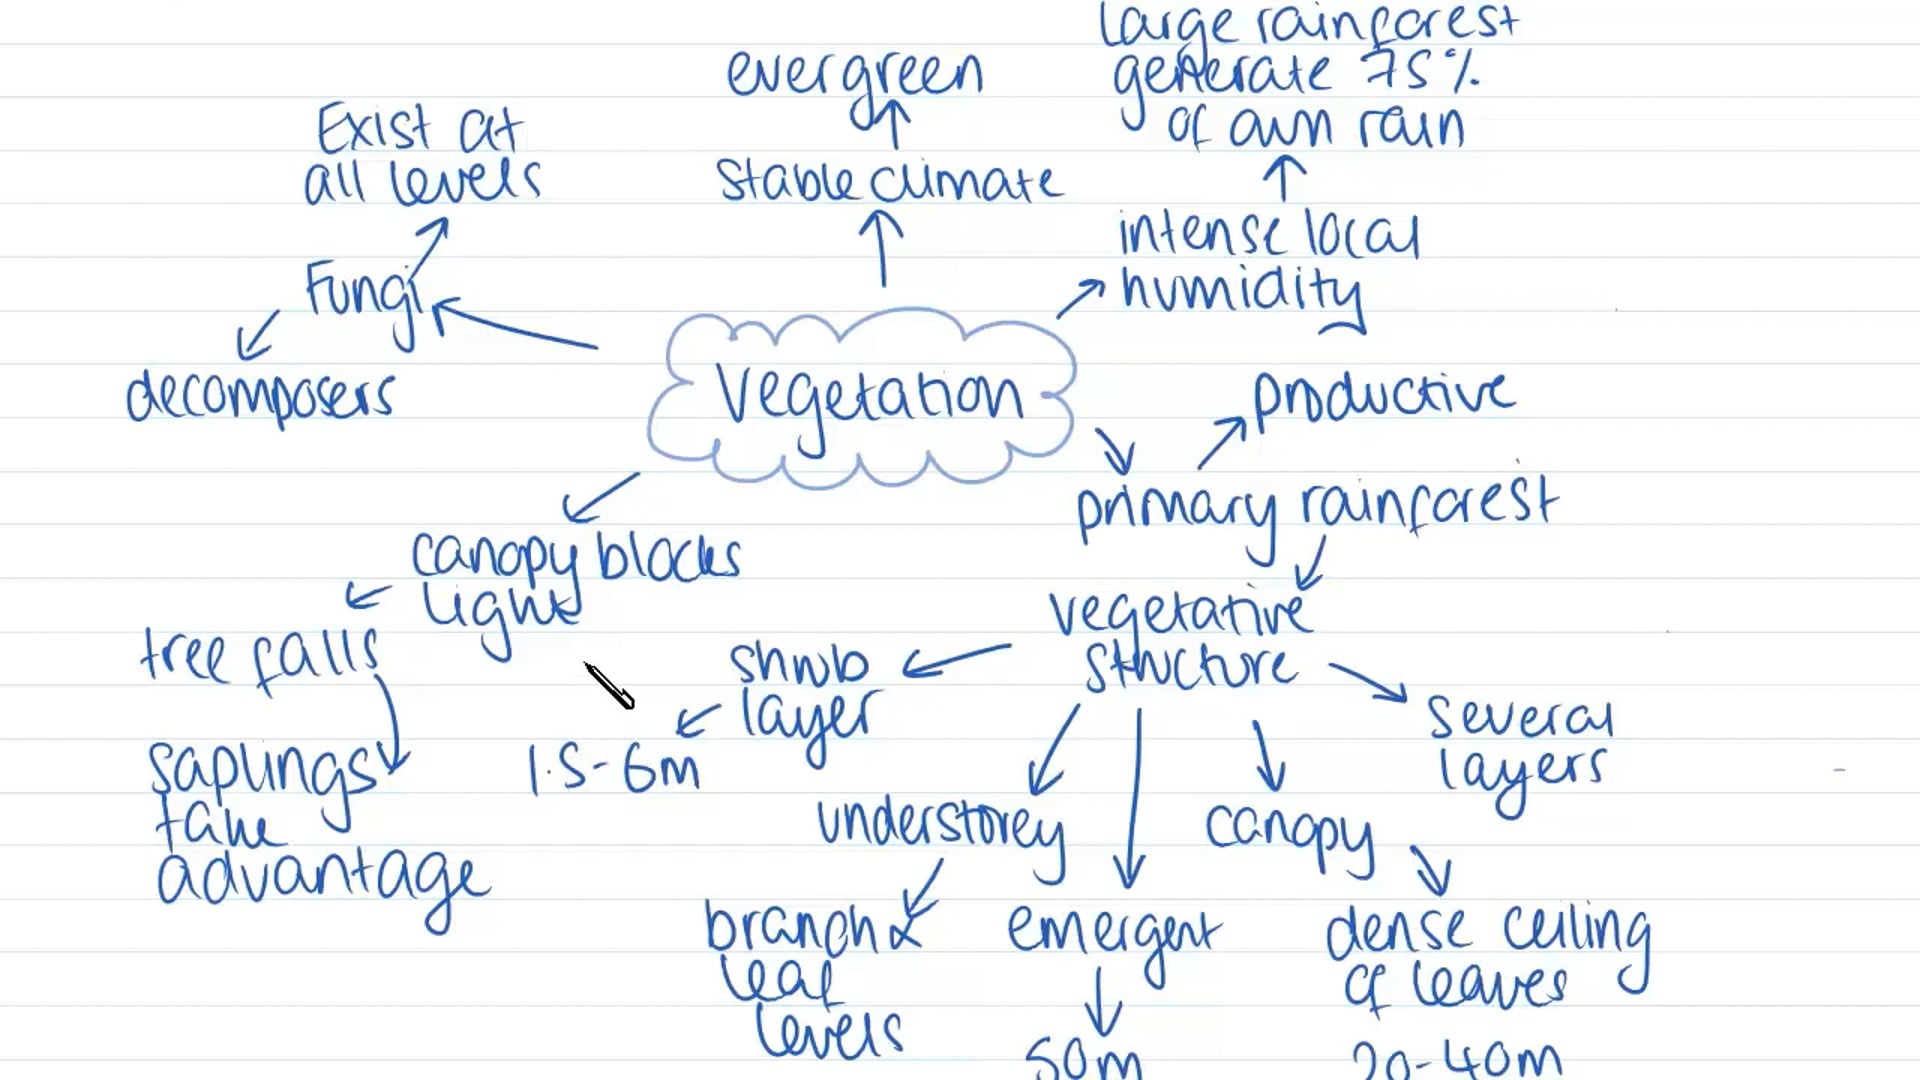 large rainforest
generate 75%
of own rain
evergreen
Exist at
all levels
stable climate
intense local
humidity
Fungi
decomposers
Vegetation
productive
primary rainforest
canopy blocks
light
vegetative
structure
tree falls
shrub
layer
several
layers
saplings
take
advantage
1.5-6m
understorey
canopy
branch &
leaf
levels
emergent
dense ceiling
of leaves
50m
20-40m